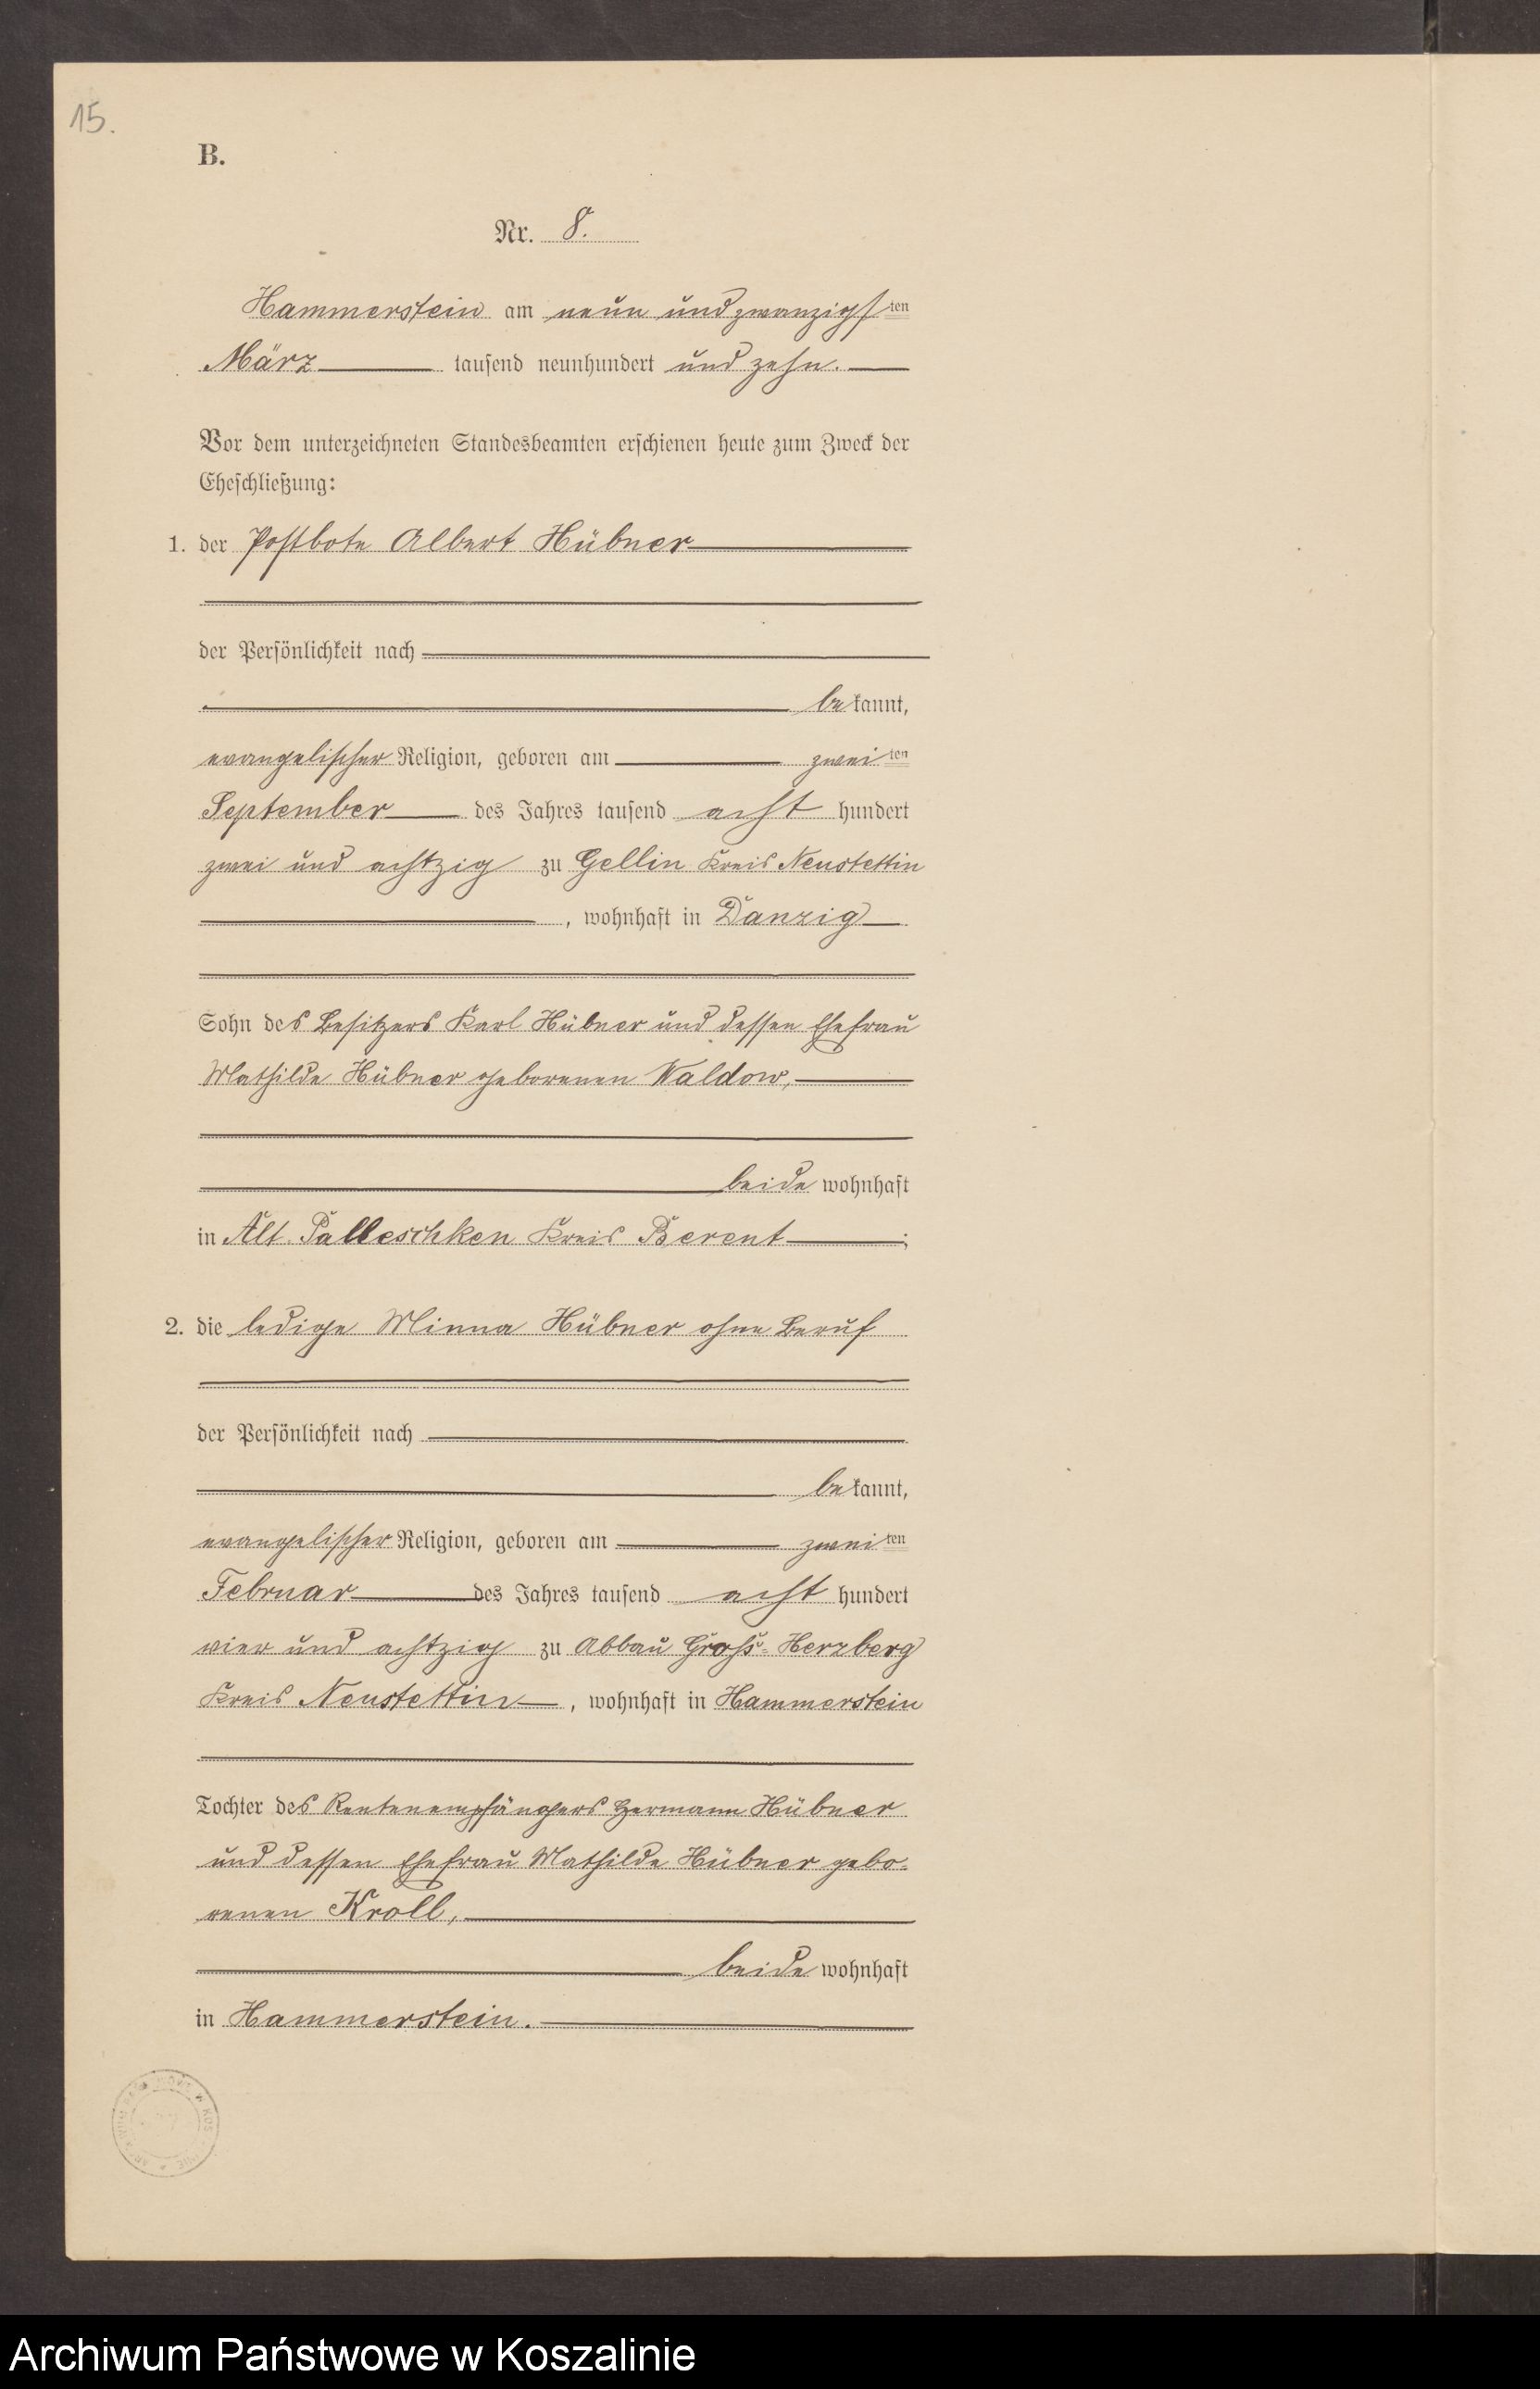 15.
B.
Nr. 8.
Hammerstein am neun und zwanzigsten
März tausend neunhundert und zehn.
Vor dem unterzeichneten Standesbeamten erschienen heute zum Zweck der
Eheschließung:
1. der Postbote Albert Hübner
der Persönlichkeit nach
bekannt,
evangelischer Religion, geboren am zweiten
September des Jahres tausend acht hundert
zwei und achtzig zu Gellin Kreis Neustettin
, wohnhaft in Danzig
Sohn des Besitzers Karl Hübner und dessen Ehefrau
Mathilde Hübner geborenen Waldow,
beide wohnhaft
in Alt Palleschken Kreis Berent ;
2. die ledige Minna Hübner ohne Beruf
der Persönlichkeit nach
bekannt,
evangelischer Religion, geboren am zweiten
Februar des Jahres tausend acht hundert
vier und achtzig zu Abbau Groß-Herzberg
Kreis Neustettin , wohnhaft in Hammerstein
Tochter des Rentenempfängers Hermann Hübner
und dessen Ehefrau Mathilde Hübner gebo-
renen Kroll,
beide wohnhaft
in Hammerstein.
Archiwum Państwowe w Koszalinie